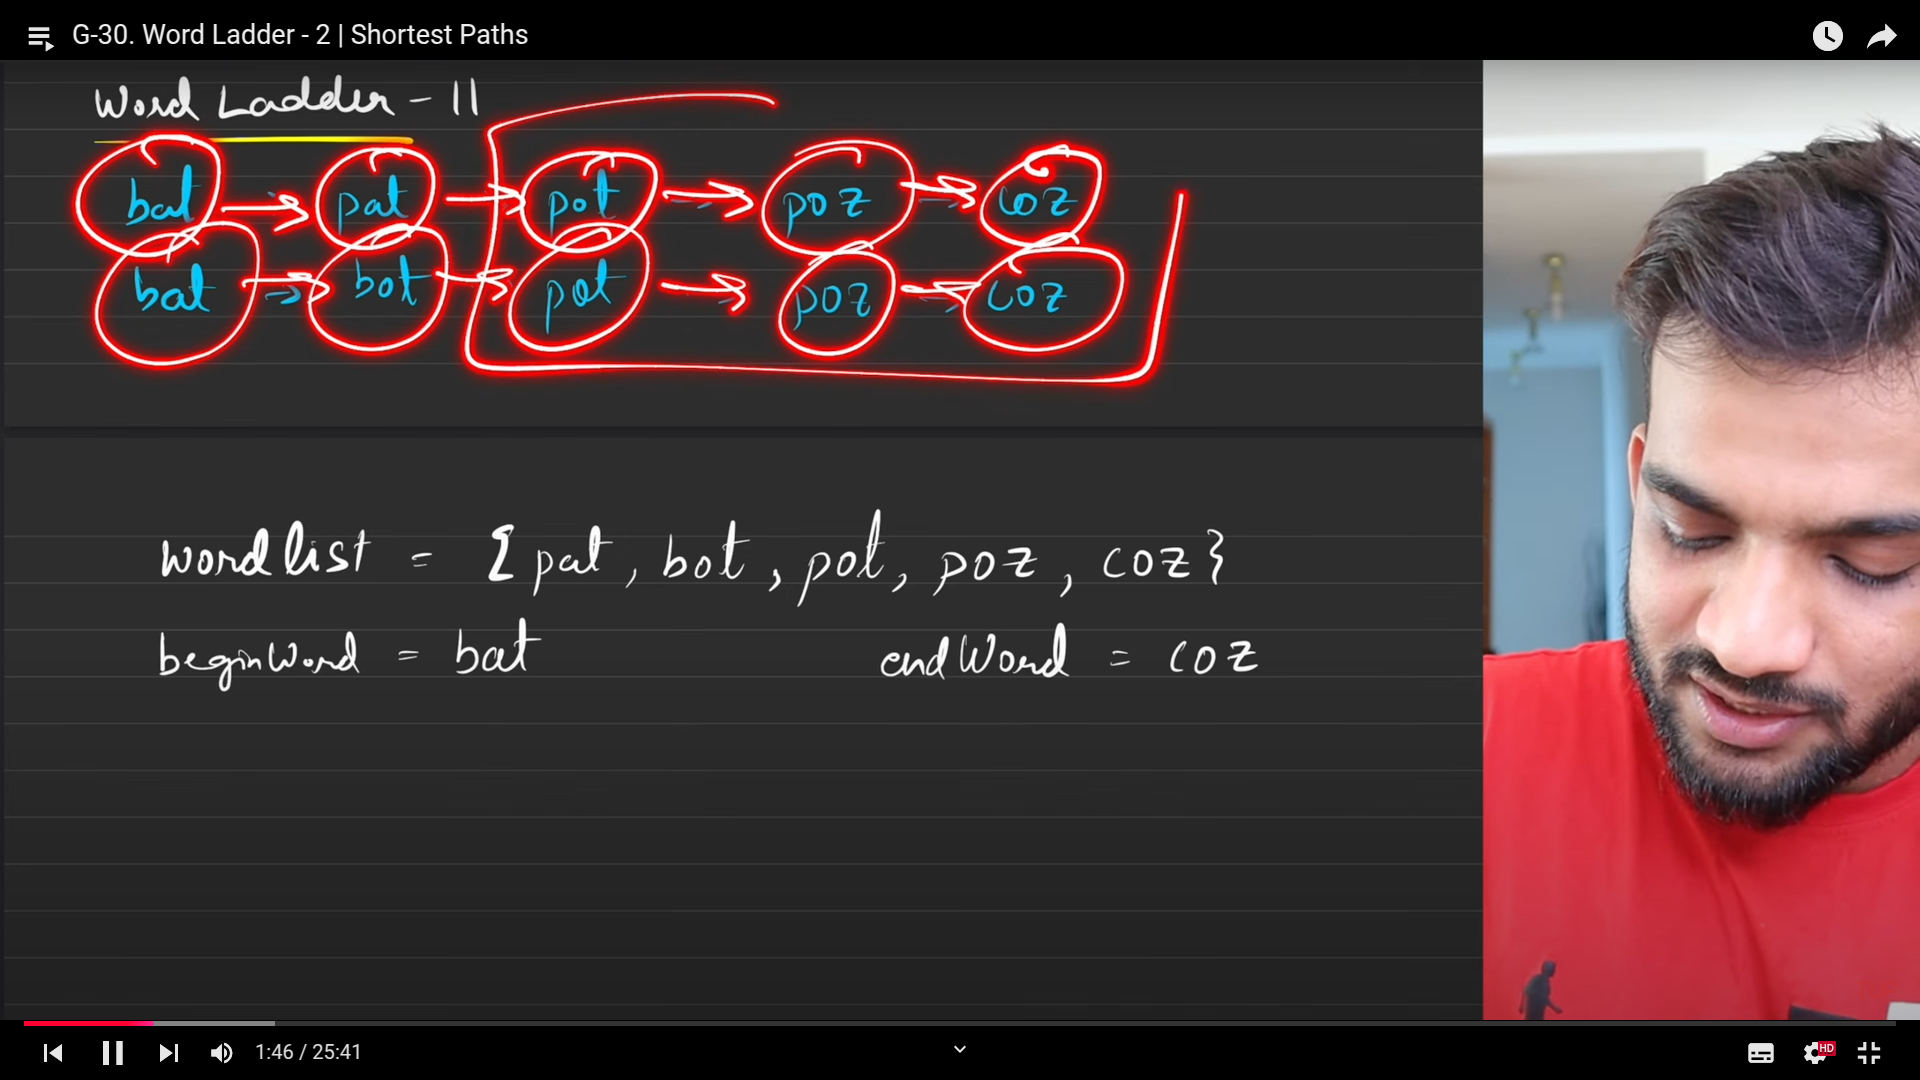 G-30. Word Ladder - 2 | Shortest Paths
Word Ladder - II
bat → pat → pot → poz → coz
bat → bot → pot → poz → coz
wordlist = {pat, bot, pot, poz, coz}
beginWord = bat endWord = coz
1:46 / 25:41
HD